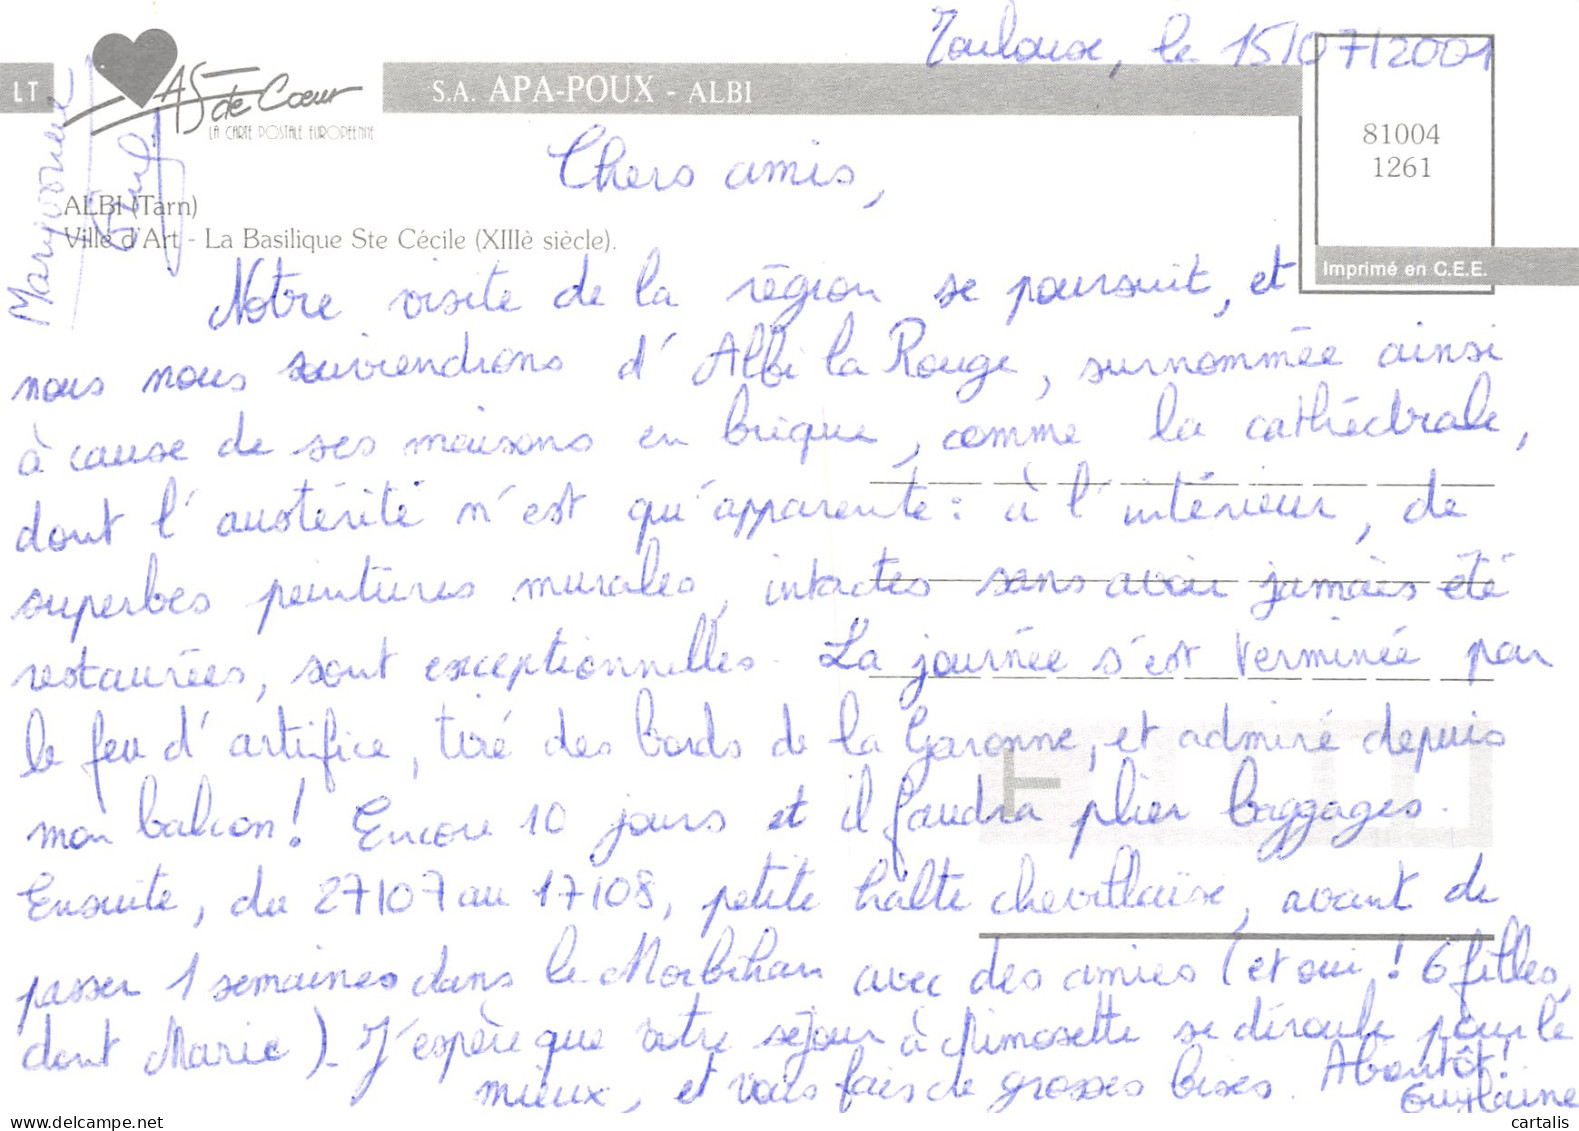 Toulouse, le 15/07/2001
LT
AS de Coeur
LA CARTE POSTALE EUROPEENNE
S.A. APA-POUX - ALBI
81004
1261
Imprimé en C.E.E.
Chers amis,
ALBI (Tarn)
Ville d'Art - La Basilique Ste Cécile (XIIIè siècle).
Notre visite de la région se poursuit, et
nous nous souviendrons d'Albi la Rouge, surnommée ainsi
à cause de ses maisons en brique, comme la cathédrale,
dont l'austérité n'est qu'apparente : à l'intérieur, de
superbes peintures murales, intactes sans avoir jamais été
restaurées, sont exceptionnelles. La journée s'est terminée par
le feu d'artifice, tiré des bords de la Garonne, et admiré depuis
mon balcon ! Encore 10 jours et il faudra plier baggages.
Ensuite, du 27/07 au 17/08, petite halte chevillaise, avant de
passer 1 semaines dans le Morbihan avec des amies (et oui ! 6 filles,
dont Marie). J'espère que votre séjour à Mimosette se déroule pour le
mieux, et vous fais de grosses bises. Abientôt !
Guylaine
Maryvonne
cartalis